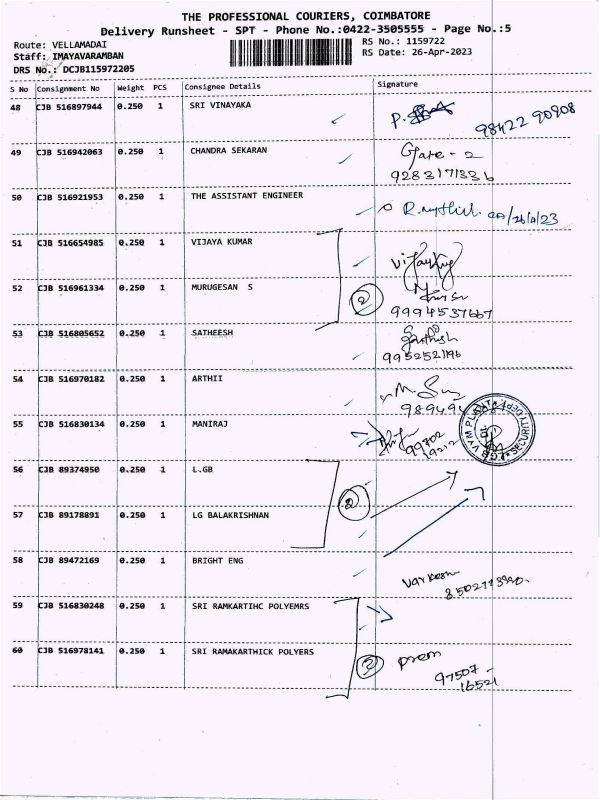 THE PROFESSIONAL COURIERS, COIMBATORE
Delivery Runsheet - SPT - Phone No.:0422-3505555 - Page No.:5
Route: VELLAMADAI
RS No.: 1159722
Staff: IMAYAVARAMBAN
RS Date: 26-Apr-2023
DRS No.: DCJB115972205
S No Consignment No Weight PCS Consignee Details Signature
48 CJB 516897944 0.250 1 SRI VINAYAKA
98422 90908
49 CJB 516942063 0.250 1 CHANDRA SEKARAN Gate - 2
9283171336
50 CJB 516921953 0.250 1 THE ASSISTANT ENGINEER
51 CJB 516654985 0.250 1 VIJAYA KUMAR
52 CJB 516961334 0.250 1 MURUGESAN S
2
9994537667
53 CJB 516805652 0.250 1 SATHEESH
9952521196
54 CJB 516970182 0.250 1 ARTHII
55 CJB 516830134 0.250 1 MANIRAJ
99702
19212
56 CJB 89374950 0.250 1 L.GB
2
57 CJB 89178891 0.250 1 LG BALAKRISHNAN
58 CJB 89472169 0.250 1 BRIGHT ENG
59 CJB 516830248 0.250 1 SRI RAMKARTIHC POLYEMRS
60 CJB 516978141 0.250 1 SRI RAMAKARTHICK POLYERS
2
Prem
97507
16521